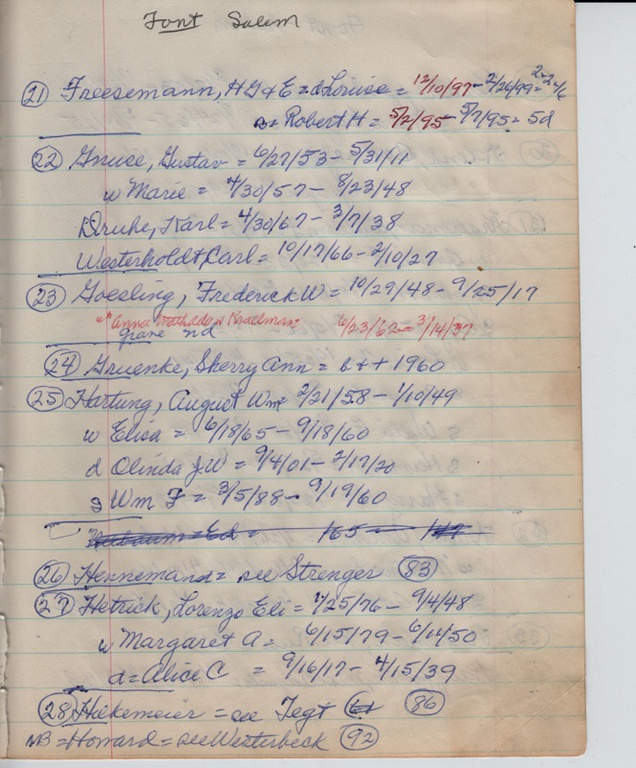 Font Salem
(21) Freesemann, H G & E = d Louise = 12/10/97 - 2/26/99 = 2-2-16
s = Robert H = 5/2/95 - 5/7/95 = 5d
(22) Gnuse, Gustav = 6/27/53 - 5/31/11
w Marie = 4/30/57 - 8/23/48
Druhe, Karl = 4/30/67 - 3/7/38
Westerholdt, Carl = 10/17/66 - 2/10/27
(23) Goesling, Frederick W = 10/29/48 - 9/25/17
"w" Anna 6/23/62 - 3/14/37
grave nd
(24) Gruenke, Sherry Ann = b + + 1960
(25) Hartung, August Wm = 2/21/58 - 1/10/49
w Elisa = 6/18/65 - 9/18/60
d Olinda J W = 9/4/01 - 2/17/20
s Wm F = 3/5/88 - 9/19/60
(26) Hennemand = see Strenger (83)
(27) Hetrick, Lorenzo Eli = 1/25/76 - 9/4/48
w Margaret A = 6/15/79 - 6/14/50
d = Alice C = 9/16/17 - 4/15/39
(28) Hiekemeier = see Tegt (86)
NB = Howard = see Westerbeck (92)